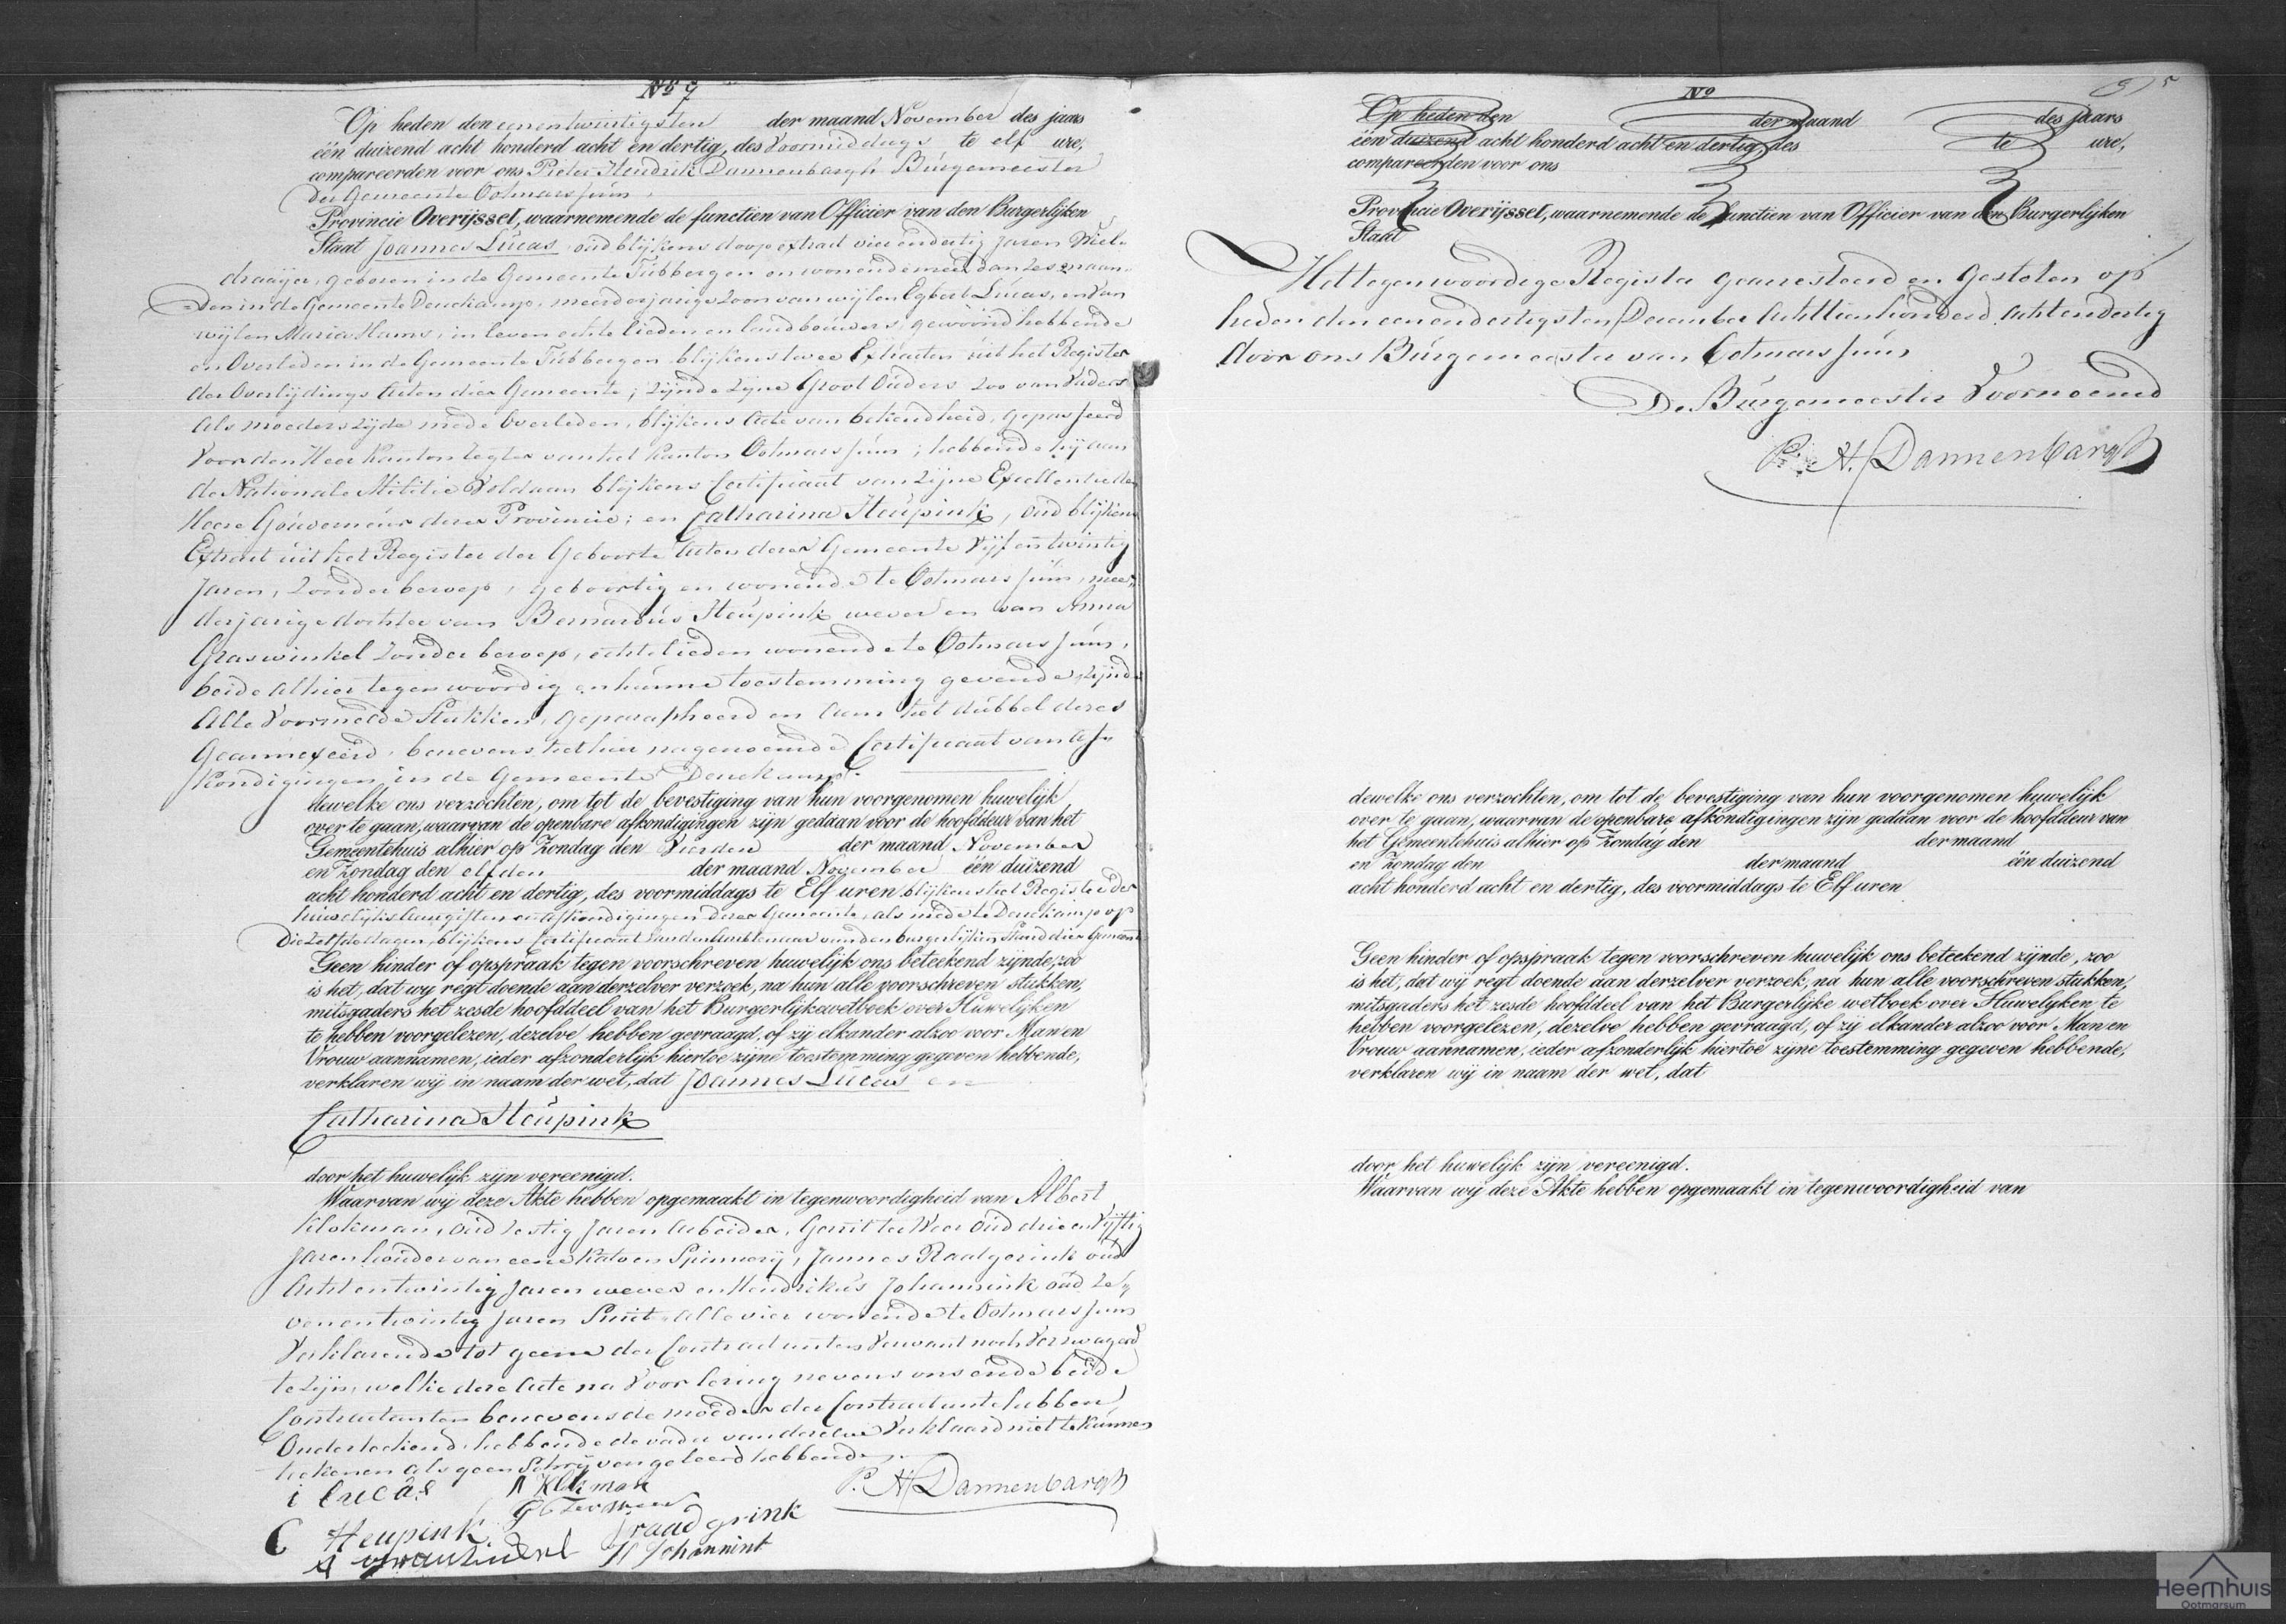 No 9
Op heden den eenentwintigsten der maand November des jaars
één duizend acht honderd acht en dertig, des Voormiddags te elf ure,
compareerden voor ons Pieter Hendrik Dannenbargh Burgemeester
der Gemeente Ootmarssum
Provincie Overijssel, waarnemende de functiën van Officier van den Burgerlijken
Staat Joannes Lucas oud blijkens doop extract vierendertig Jaren Wiel-
draaijer, geboren in de Gemeente Tubbergen en wonende meer dan zes maan-
den in de Gemeente Denekamp, meerderjarige Zoon van wijlen Egbert Lucas, en van
wijlen Maria Hams, in leven echte lieden en landbouwers, gewoond hebbende
en Overleden in de Gemeente Tubbergen blijkens twee Extracten uit het Register
der Overlijdings Acten dier Gemeente; zijnde zijne Groot Ouders zoo van Vaders
als moeders zijde mede Overleden, blijkens Acte van bekendheid, gepasseerd
Voor den Heer Kantonregter van het Kanton Ootmarssum; hebbende hij aan
de Nationale Militie Voldaan blijkens Certificaat van Zijne Excellentie den
Heere Gouverneur dezer Provincie; en Catharina Heupink, oud blijkens
Extract uit het Register der Geboorte Acten dezer Gemeente Vijfentwintig
Jaren, Zonder beroep, geboortig en wonende te Ootmarssum, meer-
derjarige dochter van Bernardus Heupink wever en van Anna
Graswinkel Zonder beroep, echtelieden wonende te Ootmarssum,
beide alhier tegenwoordig en hunne toestemming gevende, zijnde
Alle Voormelde Stukken, geparapheerd en aan het dubbel dezes
Geannexeerd, benevens het hier nagenoemde Certificaat van Af-
kondigingen in de Gemeente Denekamp.
dewelke ons verzochten, om tot de bevestiging van hun voorgenomen huwelijk
over te gaan, waarvan de openbare afkondigingen zijn gedaan voor de hoofddeur van het
Gemeentehuis alhier op Zondag den Vierden der maand November
en Zondag den elfden der maand November één duizend
acht honderd acht en dertig, des voormiddags te Elf uren blijkens het Register der
huwelijks aangiften en Afkondigingen dezer Gemeente, als mede te Denekamp op
die zelfde dagen, blijkens Certificaat van den Ambtenaar van den burgerlijken Stand dier Gemeente
Geen hinder of opspraak tegen voorschreven huwelijk ons beteekend zijnde, zoo
is het, dat wij regt doende aan derzelver verzoek, na hun alle voorschreven stukken,
mitsgaders het zesde hoofddeel van het Burgerlijke wetboek over Huwelijken
te hebben voorgelezen, dezelve hebben gevraagd, of zij elkander alzoo voor Man en
Vrouw aannamen, ieder afzonderlijk hiertoe zijne toestemming gegeven hebbende,
verklaren wij in naam der wet, dat Joannes Lucas en
Catharina Heupink
door het huwelijk zijn vereenigd.
Waarvan wij deze Akte hebben opgemaakt in tegenwoordigheid van Albert
Klokman, oud zestig Jaren Arbeider, Gerrit ter Weer oud drieenvijftig
Jaren houder van eene Katoen Spinnerij, Jannes Raadgerink oud
Achtentwintig Jaren wever en Hendrikus Johannink oud ze-
venentwintig Jaren Smit, alle vier wonende te Ootmarssum
Verklarende tot geene der Contractanten Verwant noch Verzwagerd
te zijn, welke deze Acte na Voorlezing nevens ons ende beide
Contractanten benevens de moeder der Contractante hebben
Onderteekend, hebbende de vader van dezelve Verklaard niet te kunnen
teekenen als geen Schrijven geleerd hebbende.
i lucas A Klokman P. H. Dannenbargh
G Ter Weer
C Heupink J raadgrink
H Johannink
No
915
Op heden den der maand des jaars
één duizend acht honderd acht en dertig, des te ure,
compareerden voor ons
Provincie Overijssel, waarnemende de functiën van Officier van den Burgerlijken
Staat
Het tegenwoordige Register gearresteerd en gesloten op
heden den eenendertigsten December Achttienhonderd Achtendertig
door ons Burgemeester van Ootmarssum
De Burgemeester Voornoemd
P. H. Dannenbargh
dewelke ons verzochten, om tot de bevestiging van hun voorgenomen huwelijk
over te gaan, waarvan de openbare afkondigingen zijn gedaan voor de hoofddeur van
het Gemeentehuis alhier op Zondag den der maand
en Zondag den der maand één duizend
acht honderd acht en dertig, des voormiddags te Elf uren
Geen hinder of opspraak tegen voorschreven huwelijk ons beteekend zijnde, zoo
is het, dat wij regt doende aan derzelver verzoek, na hun alle voorschreven stukken,
mitsgaders het zesde hoofddeel van het Burgerlijke wetboek over Huwelyken te
hebben voorgelezen, dezelve hebben gevraagd, of zij elkander alzoo voor Man en
Vrouw aannamen, ieder afzonderlijk hiertoe zijne toestemming gegeven hebbende,
verklaren wij in naam der wet, dat
door het huwelijk zijn vereenigd.
Waarvan wij deze Akte hebben opgemaakt in tegenwoordigheid van
Heemhuis
Ootmarsum